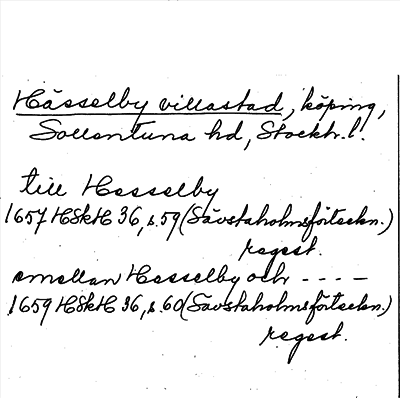 Hässelby villastad, köping,
Sollentuna hd, Stockh. l.
till Hesselby
1657 HSkH 36, s. 59 (Sävstaholmsförteckn.)
regest.
emellan Hesselby och - - - -
1659 HSkH 36, s. 60 (Sävstaholmsförteckn.)
regest.